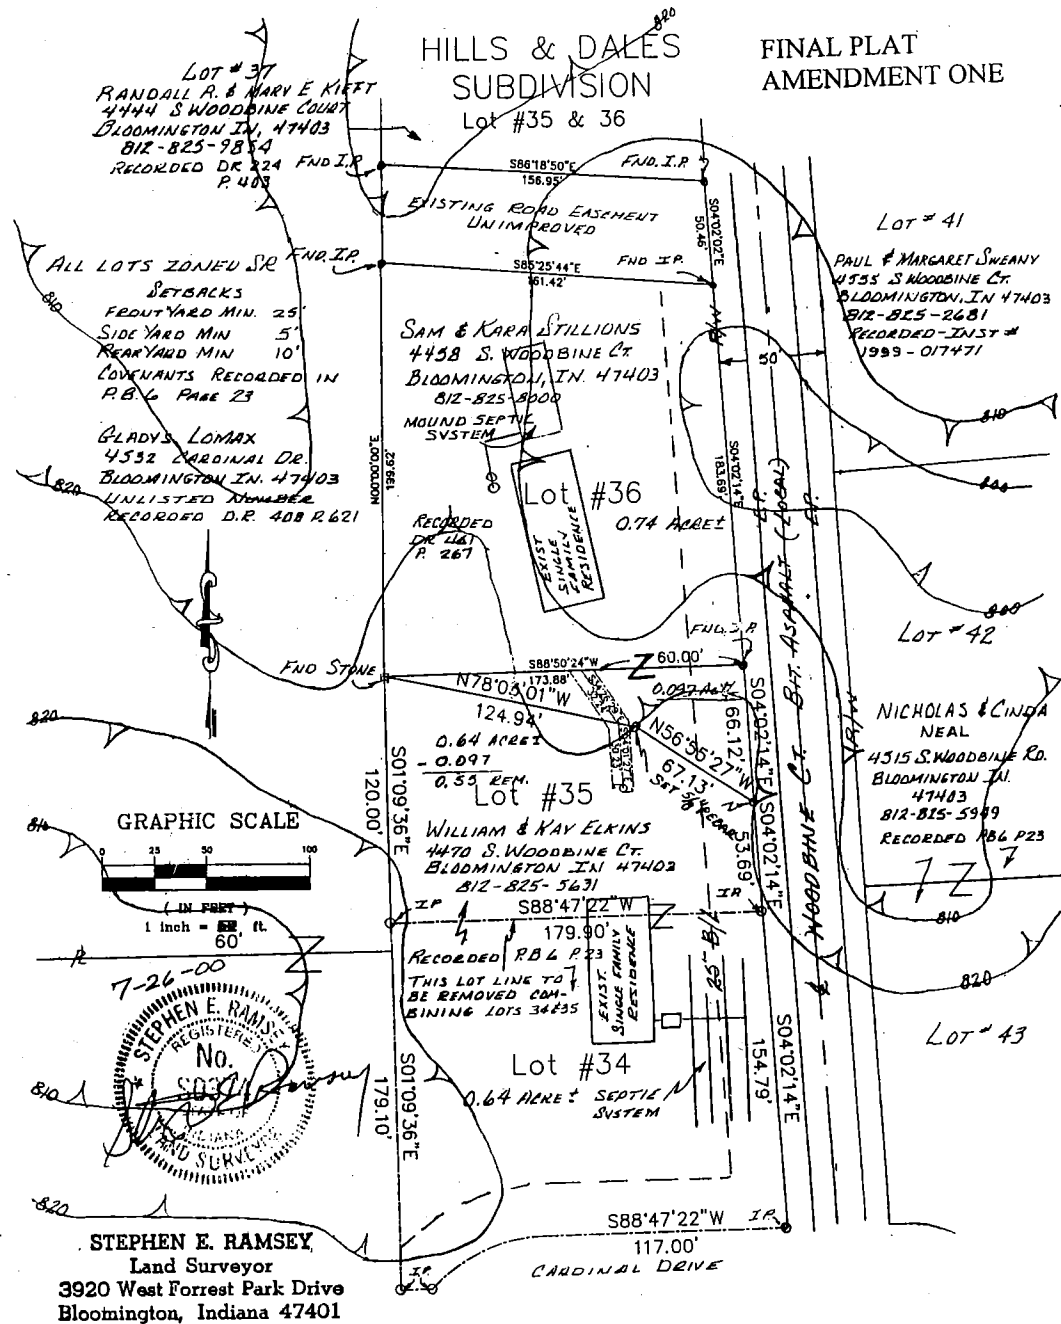 HILLS & DALES
SUBDIVISION
Lot #35 & 36
FINAL PLAT
AMENDMENT ONE
820
820
LOT # 37
RANDALL R. & MARY E KIEFT
4444 S WOODBINE COURT
BLOOMINGTON IN, 47403
812-825-9854
RECORDED DR 224
P. 403
FND I.P.
S86°18'50"E
156.95'
FND. I.P.
EXISTING ROAD EASEMENT
UNIMPROVED
S04°02'02"E
50.46'
LOT # 41
PAUL & MARGARET SWEANY
4535 S WOODBINE CT.
BLOOMINGTON, IN 47403
812-825-2681
RECORDED-INST #
1999-017471
ALL LOTS ZONED SR
SETBACKS
FRONT YARD MIN. 25'
SIDE YARD MIN 5'
REAR YARD MIN 10'
COVENANTS RECORDED IN
P.B. 6 PAGE 23
810
FND. I.P.
S85°25'44"E
161.42'
FND I.P.
R/W
50'
SAM & KARA STILLIONS
4458 S. WOODBINE CT.
BLOOMINGTON, IN. 47403
812-825-8000
MOUND SEPTIC
SYSTEM
GLADYS LOMAX
4532 CARDINAL DR.
BLOOMINGTON IN. 47403
UNLISTED NUMBER
RECORDED D.R. 408 P. 621
820
N00°00'00"E
199.62'
S04°02'14"E
183.69'
Lot #36
0.74 ACRE±
RECORDED
DR 461
P. 267
EXIST
SINGLE
FAMILY
RESIDENCE
E.P.
E.P.
WOODBINE CT. BIT. ASPHALT (LOCAL)
810
800
800
LOT # 42
FND STONE
S88°50'24"W
173.88'
Z 60.00'
FND. I.P.
N78°03'01"W
124.94'
0.097 AC±
0.64 ACRE±
- 0.097
0.55 REM.
N56°56'27"W
67.13'
SET 5/8 REBAR
S04°02'14"E
66.12'
S04°02'14"E
53.69'
R/W
NICHOLAS & CINDA
NEAL
4515 S. WOODBINE RD.
BLOOMINGTON IN.
47403
812-825-5949
RECORDED PB6 P23
820
810
S01°09'36"E
120.00'
Lot #35
WILLIAM & KAY ELKINS
4470 S. WOODBINE CT.
BLOOMINGTON IN 47403
812-825-5631
GRAPHIC SCALE
0 25 50 100
( IN FEET )
1 inch = 60' ft.
I.P.
S88°47'22"W
179.90'
IP
Z
810
RECORDED P.B 6 P.23
THIS LOT LINE TO
BE REMOVED COM-
BINING LOTS 34&35
EXIST.
SINGLE FAMILY
RESIDENCE
25' B/L
820
LOT # 43
7-26-00
STEPHEN E. RAMSEY
REGISTERED
No.
INDIANA
LAND SURVEYOR
810
820
Lot #34
0.64 ACRE±
SEPTIC
SYSTEM
S01°09'36"E
179.10'
S04°02'14"E
154.79'
S88°47'22"W
117.00'
I.P.
CARDINAL DRIVE
I.P.
STEPHEN E. RAMSEY
Land Surveyor
3920 West Forrest Park Drive
Bloomington, Indiana 47401